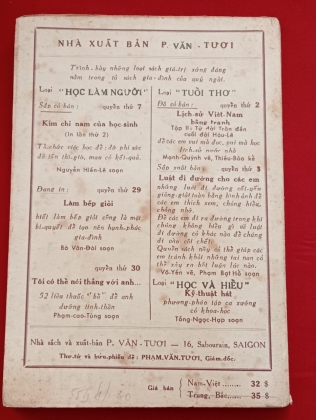 NHÀ XUẤT BẢN P. VĂN - TƯƠI
Trình-bày những loại sách giá-trị xứng đáng
nằm trong tủ sách gia-đình của quý ngài.
Loại "HỌC LÀM NGƯỜI"
Sắp có bán: quyển thứ 7
Kim chỉ nam của học-sinh
(in lần thứ 2)
Tổ-chức việc học để: đỡ phí sức
đỡ tốn thì-giờ, mau có kết-quả.
Nguyễn Hiến-Lê soạn
Đang in: quyển thứ 29
Làm bếp giỏi
biết làm bếp giỏi cũng là một
bí-quyết để tạo vận hạnh-phúc
gia-đình
Bà Vân-Đài soạn
quyển thứ 30
Tôi có thể nói thẳng với anh...
52 liều thuốc "bổ" để anh
dưỡng tinh-thần
Phạm-cao-Tùng soạn
Loại "TUỔI THƠ"
Đã có bán: quyển thứ 2
Lịch-sử Việt-Nam
bằng tranh
Tập II: Từ đời Trần đến
cuối đời Hậu-Lê
để các em vui mà đọc, coi mà học
lịch-sử nước nhà
Mạnh-Quỳnh vẽ, Thiếu-Bảo kể
Sắp xuất bản: quyển thứ 3
Luật đi đường cho các em
những luật đi đường
giềng-giải toàn bằng hình-ảnh để
các em thích xem, chóng hiểu,
chóng nhớ.
Để các em đi ra đường trong khi
chúng không hiểu gì về luật
đi đường có khác nào để chúng
đi vào cõi chết!
Quyển sách này có thể giúp các
em tránh khỏi những tai nạn có
thể xảy ra bất luận lúc nào.
Võ-Yến vẽ, Phạm Bạt-Hổ soạn
Loại "HỌC VÀ HIỂU"
Kỹ-thuật hát
phương-pháp tập ca xướng
có khoa-học
Tống-Ngọc-Hạp soạn
Nhà sách và xuất-bản P. VĂN-TƯƠI — 16, Sabourain, SAIGON
Thư-từ và bưu-phiếu đề: PHẠM-VĂN-TƯƠI, Giám-đốc.
Giá bán { Nam-Việt ........ 32 $
Trung, Bắc ...... 35 $